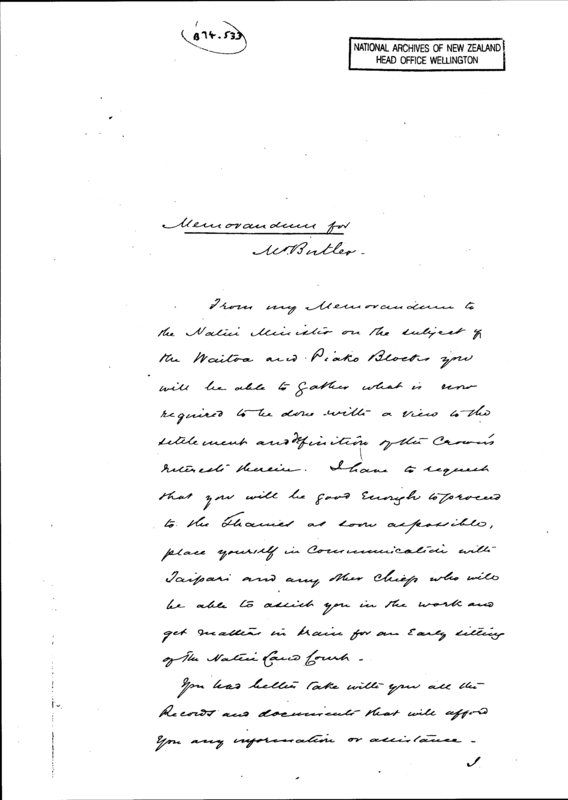 874.533
NATIONAL ARCHIVES OF NEW ZEALAND
HEAD OFFICE WELLINGTON
Memorandum for
Mr Butler.
From my Memorandum to
the Native Minister on the subject of
the Waitoa and Piako Blocks you
will be able to gather what is now
required to be done with a view to the
settlement and definition of the Crown's
interests therein. I have to request
that you will be good enough to proceed
to the Thames as soon as possible,
place yourself in communication with
Taipari and any other Chiefs who will
be able to assist you in the work and
get matters in train for an early sitting
of the Native Land Court.
You had better take with you all the
Records and documents that will afford
you any information or assistance.
I